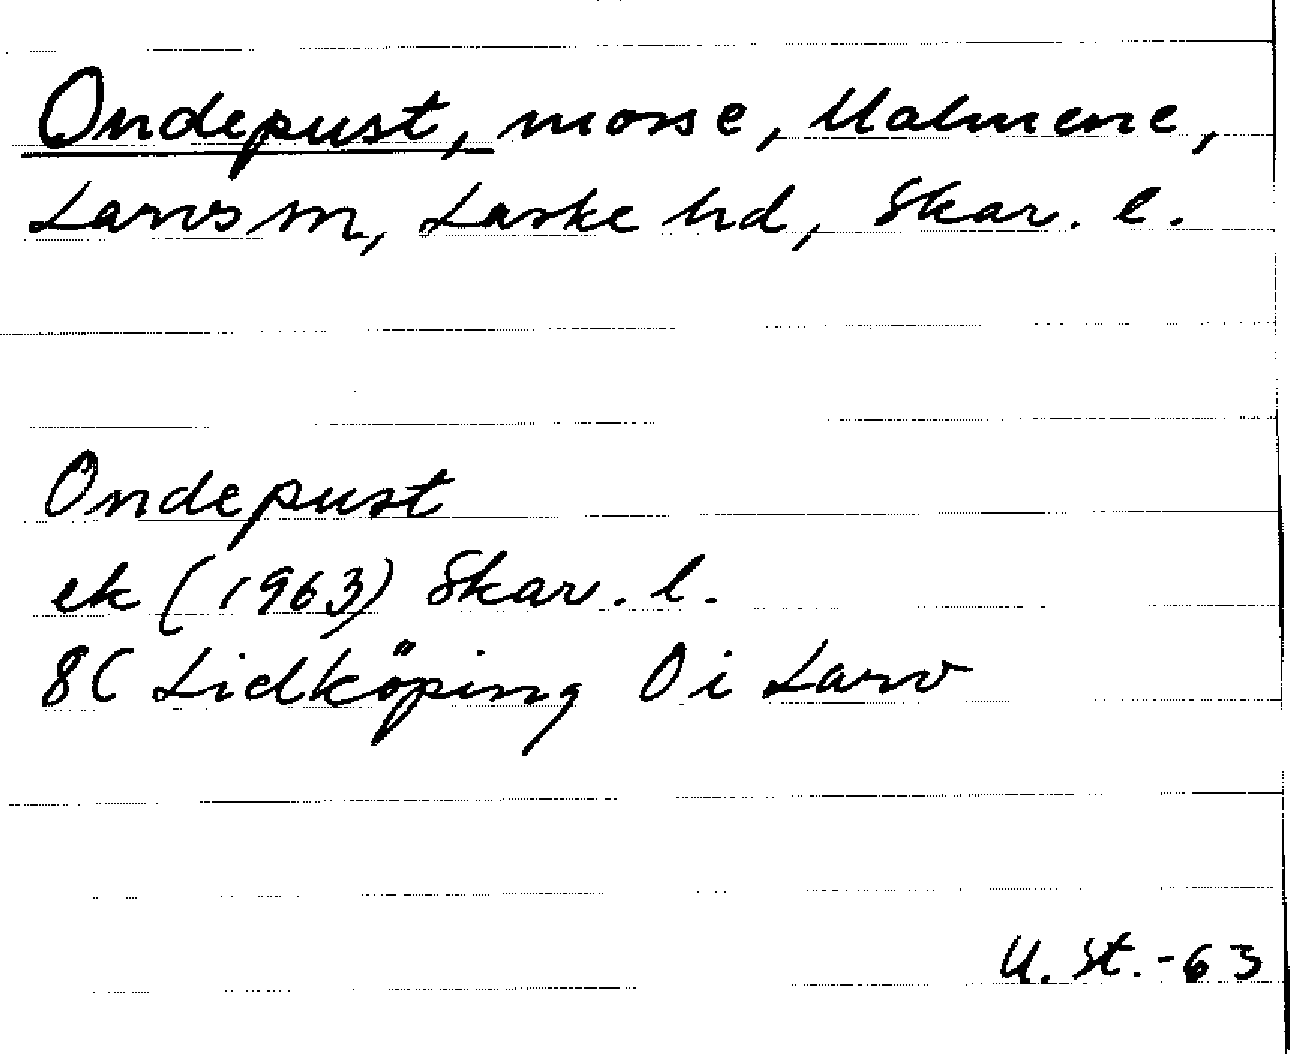 Ondepust, mosse, Malmene,
Larvs sn, Laske hd, Skar. l.
Ondepust
ek (1963) Skar. l.
8C Lidköping O i Larv
U. St. -63